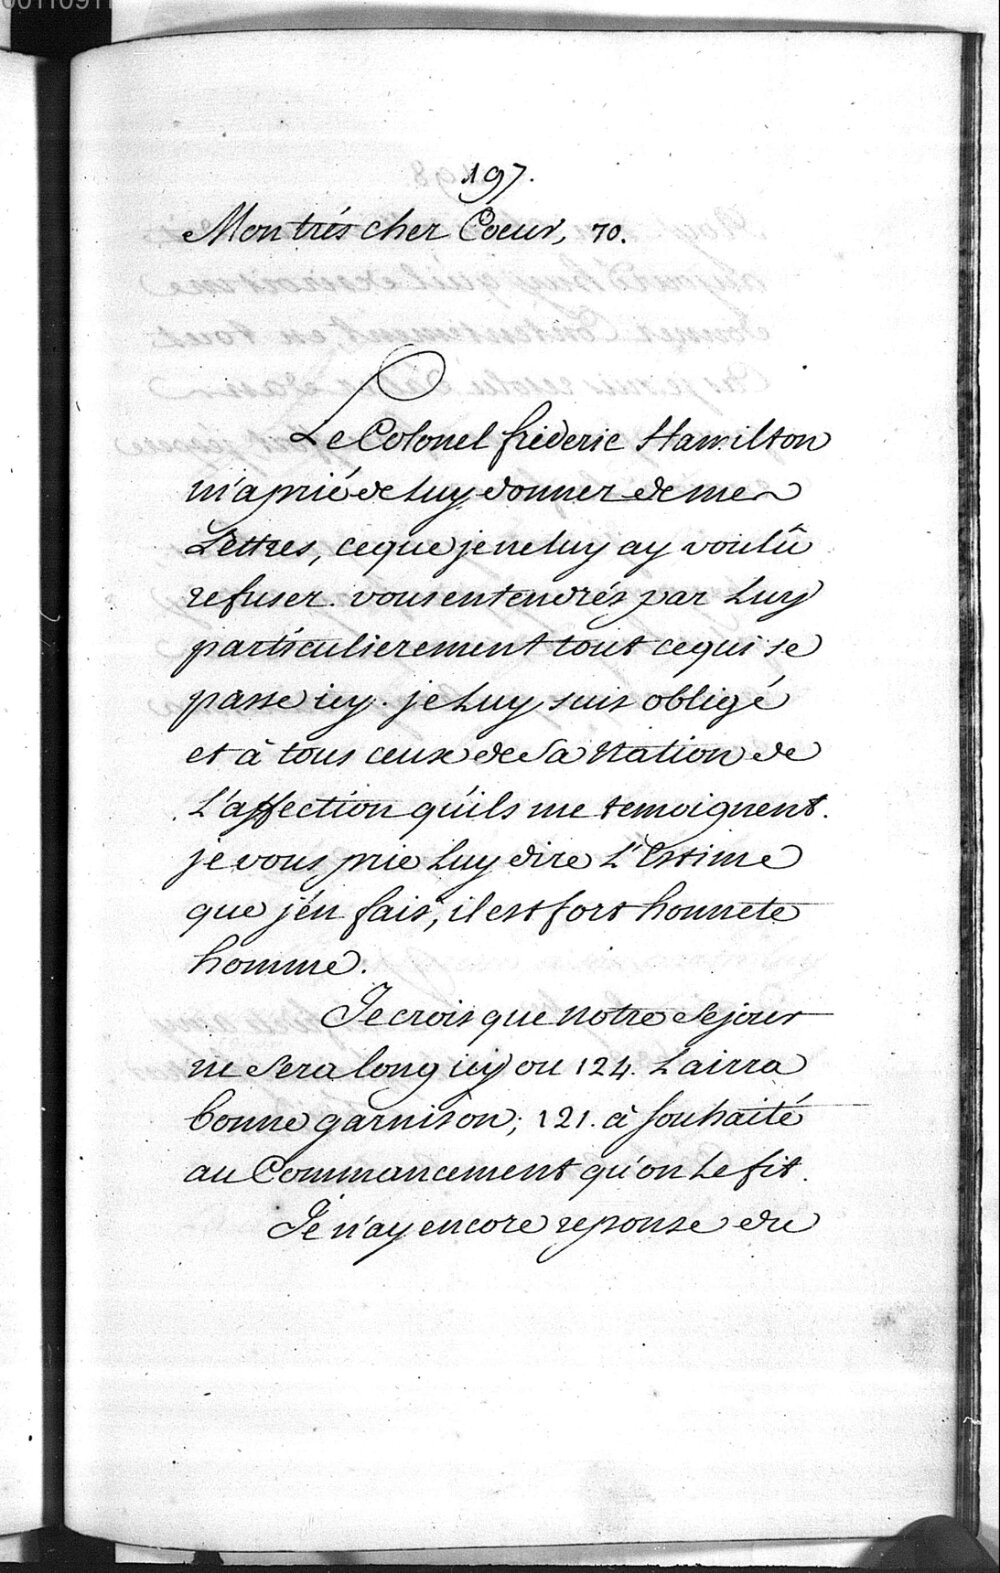 197.
Mon trés cher Coeur, 70.
Le Colonel frideric Hamilton
m'a prié de luy donner de mes
Lettres, ce que je ne luy ay voulû
refuser. vous entendrés par Luy
particulierement tout ce qui se
passe icy. je Luy suis obligé
et à tous ceux de Sa Nation de
L'affection qu'ils me temoignent.
je vous prie Luy dire L'Estime
que j'en fais, il est fort honnete
homme.
Je crois que notre Sejour
ne Sera long icy ou 124. Lairra
bonne garnison; 121. à Souhaité
au Commancement qu'on Le fit.
Je n'ay encore reponse du